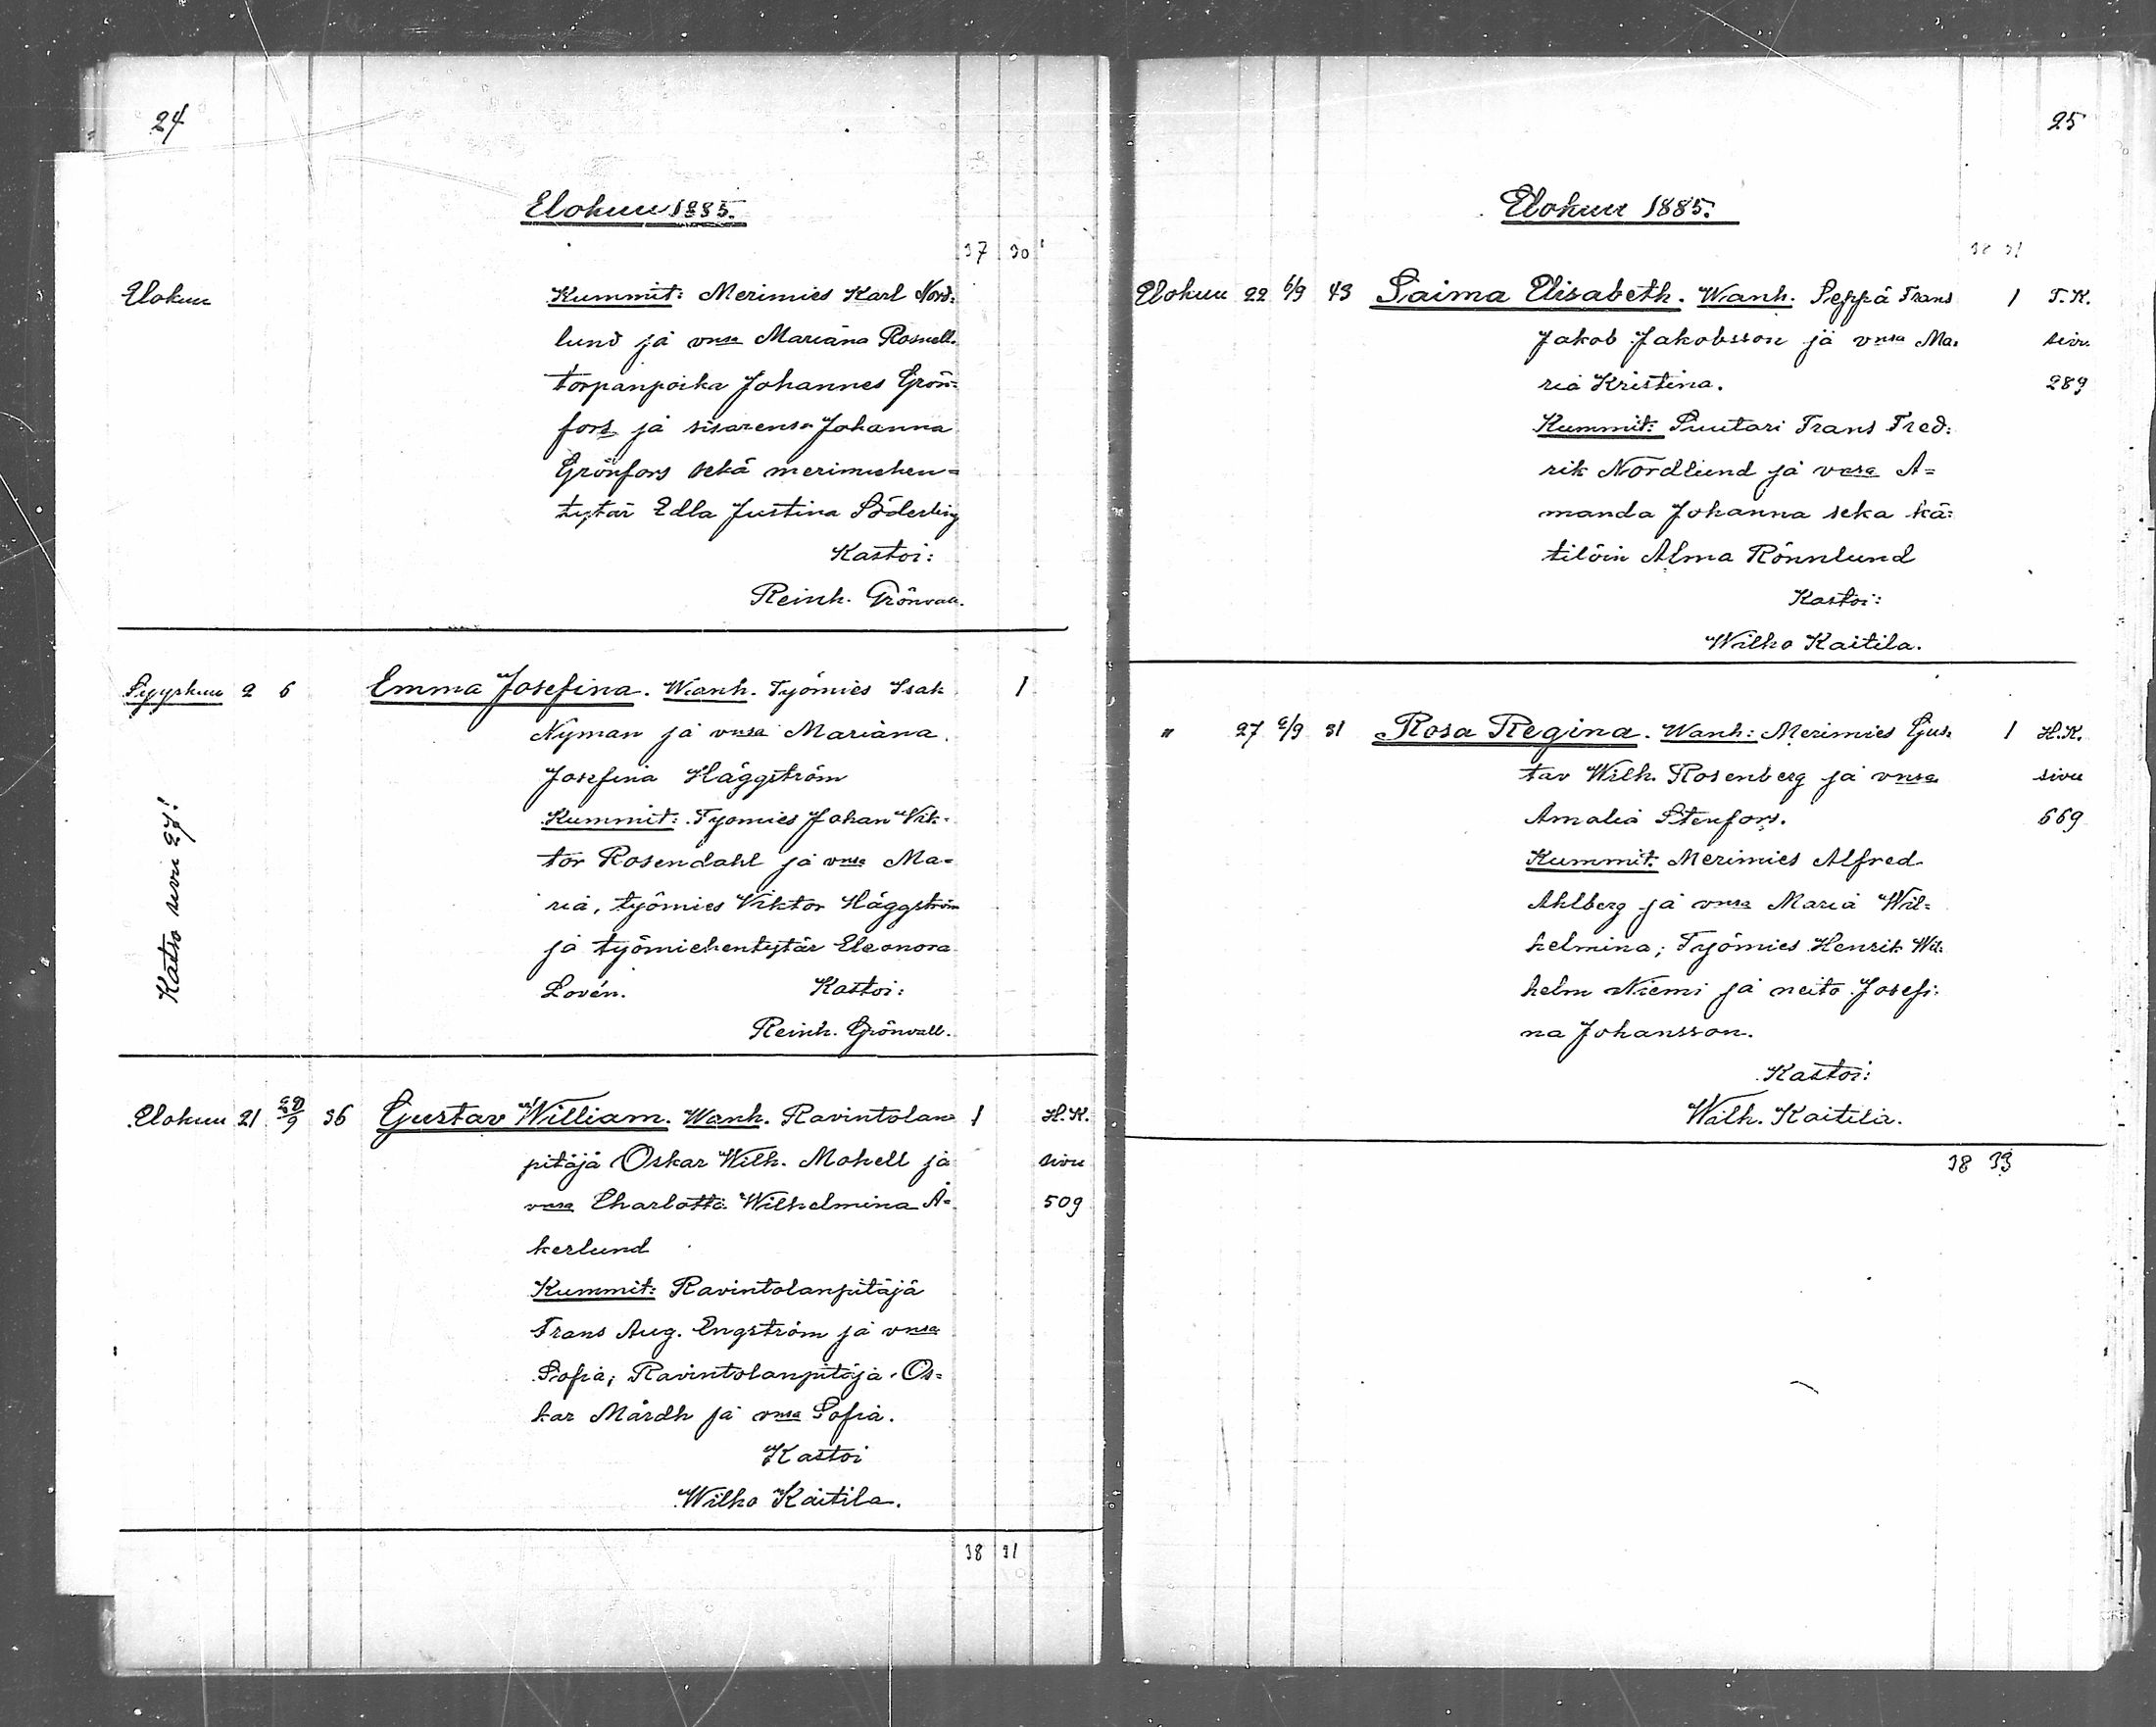 24
Elokuu 1885.
37 30
Elokuu Kummit: Merimies Karl Nord=
lund ja vnsa Mariana Rosnell.
torpanpoika Johannes Grön=
fors ja sisarensa Johanna
Grönfors sekä merimiehen=
tytär Edla Justina Söderling
Kastoi:
Reinh. Grönvall.
Syyskuu 2 6 Emma Josefina. Wanh. Työmies Isak 1
Nyman ja vnsa Mariana
Josefina Häggström
Kummit: Työmies Johan Vik=
tor Rosendahl ja vnsa Ma=
ria, työmies Viktor Häggström
ja työmiehentytär Eleonora
Lovén. Kastoi:
Reinh. Grönvall.
Katso sivu 27!
Elokuu 21 36 Gustav William. Wanh. Ravintolan= 1 H.K.
pitäjä Oskar Wilh. Mohell ja sivu
vnsa Charlotta Wilhelmina Å= 509
kerlund
Kummit: Ravintolanpitäjä
Frans Aug. Engström ja vnsa
Sofia; Ravintolanpitäjä Os=
kar Mårdh ja vnsa Sofia.
Kastoi
Wilho Kaitila.
38 31
25
Elokuu 1885.
38 31
Elokuu 22 6/9 43 Saima Elisabeth. Wanh. Seppä Frans 1 T.K.
Jakob Jakobsson ja vnsa Ma= sivu
ria Kristina. 289
Kummit: Suutari Frans Fred=
rik Nordlund ja vnsa A=
manda Johanna sekä kä=
tilöin Alma Rönnlund
Kastoi:
Wilho Kaitila.
" 27 6/9 31 Rosa Regina. Wanh: Merimies Gus= 1 H.K.
tav Wilh. Rosenberg ja vnsa sivu
Amalia Stenfors. 669
Kummit: Merimies Alfred
Ahlberg ja vnsa Maria Wil=
helmina; Työmies Henrik Wil=
helm Niemi ja neito Josefi=
na Johansson.
Kastoi:
Wilh. Kaitila.
38 33